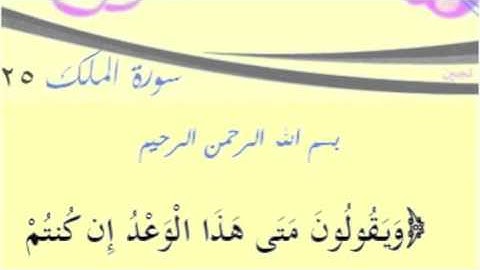 سورة الملك ٢٥
بسم الله الرحمن الرحيم
﴿وَيَقُولُونَ مَتَى هَذَا الْوَعْدُ إِن كُنتُمْ